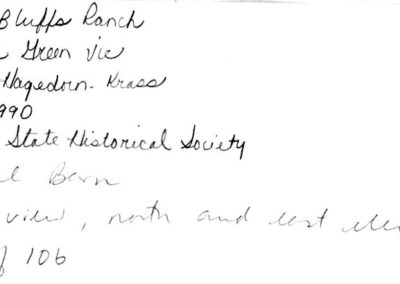 Bluffs Ranch
Green Vic
Hagedorn-Krass
990
State Historical Society
Barn
view, north and
106